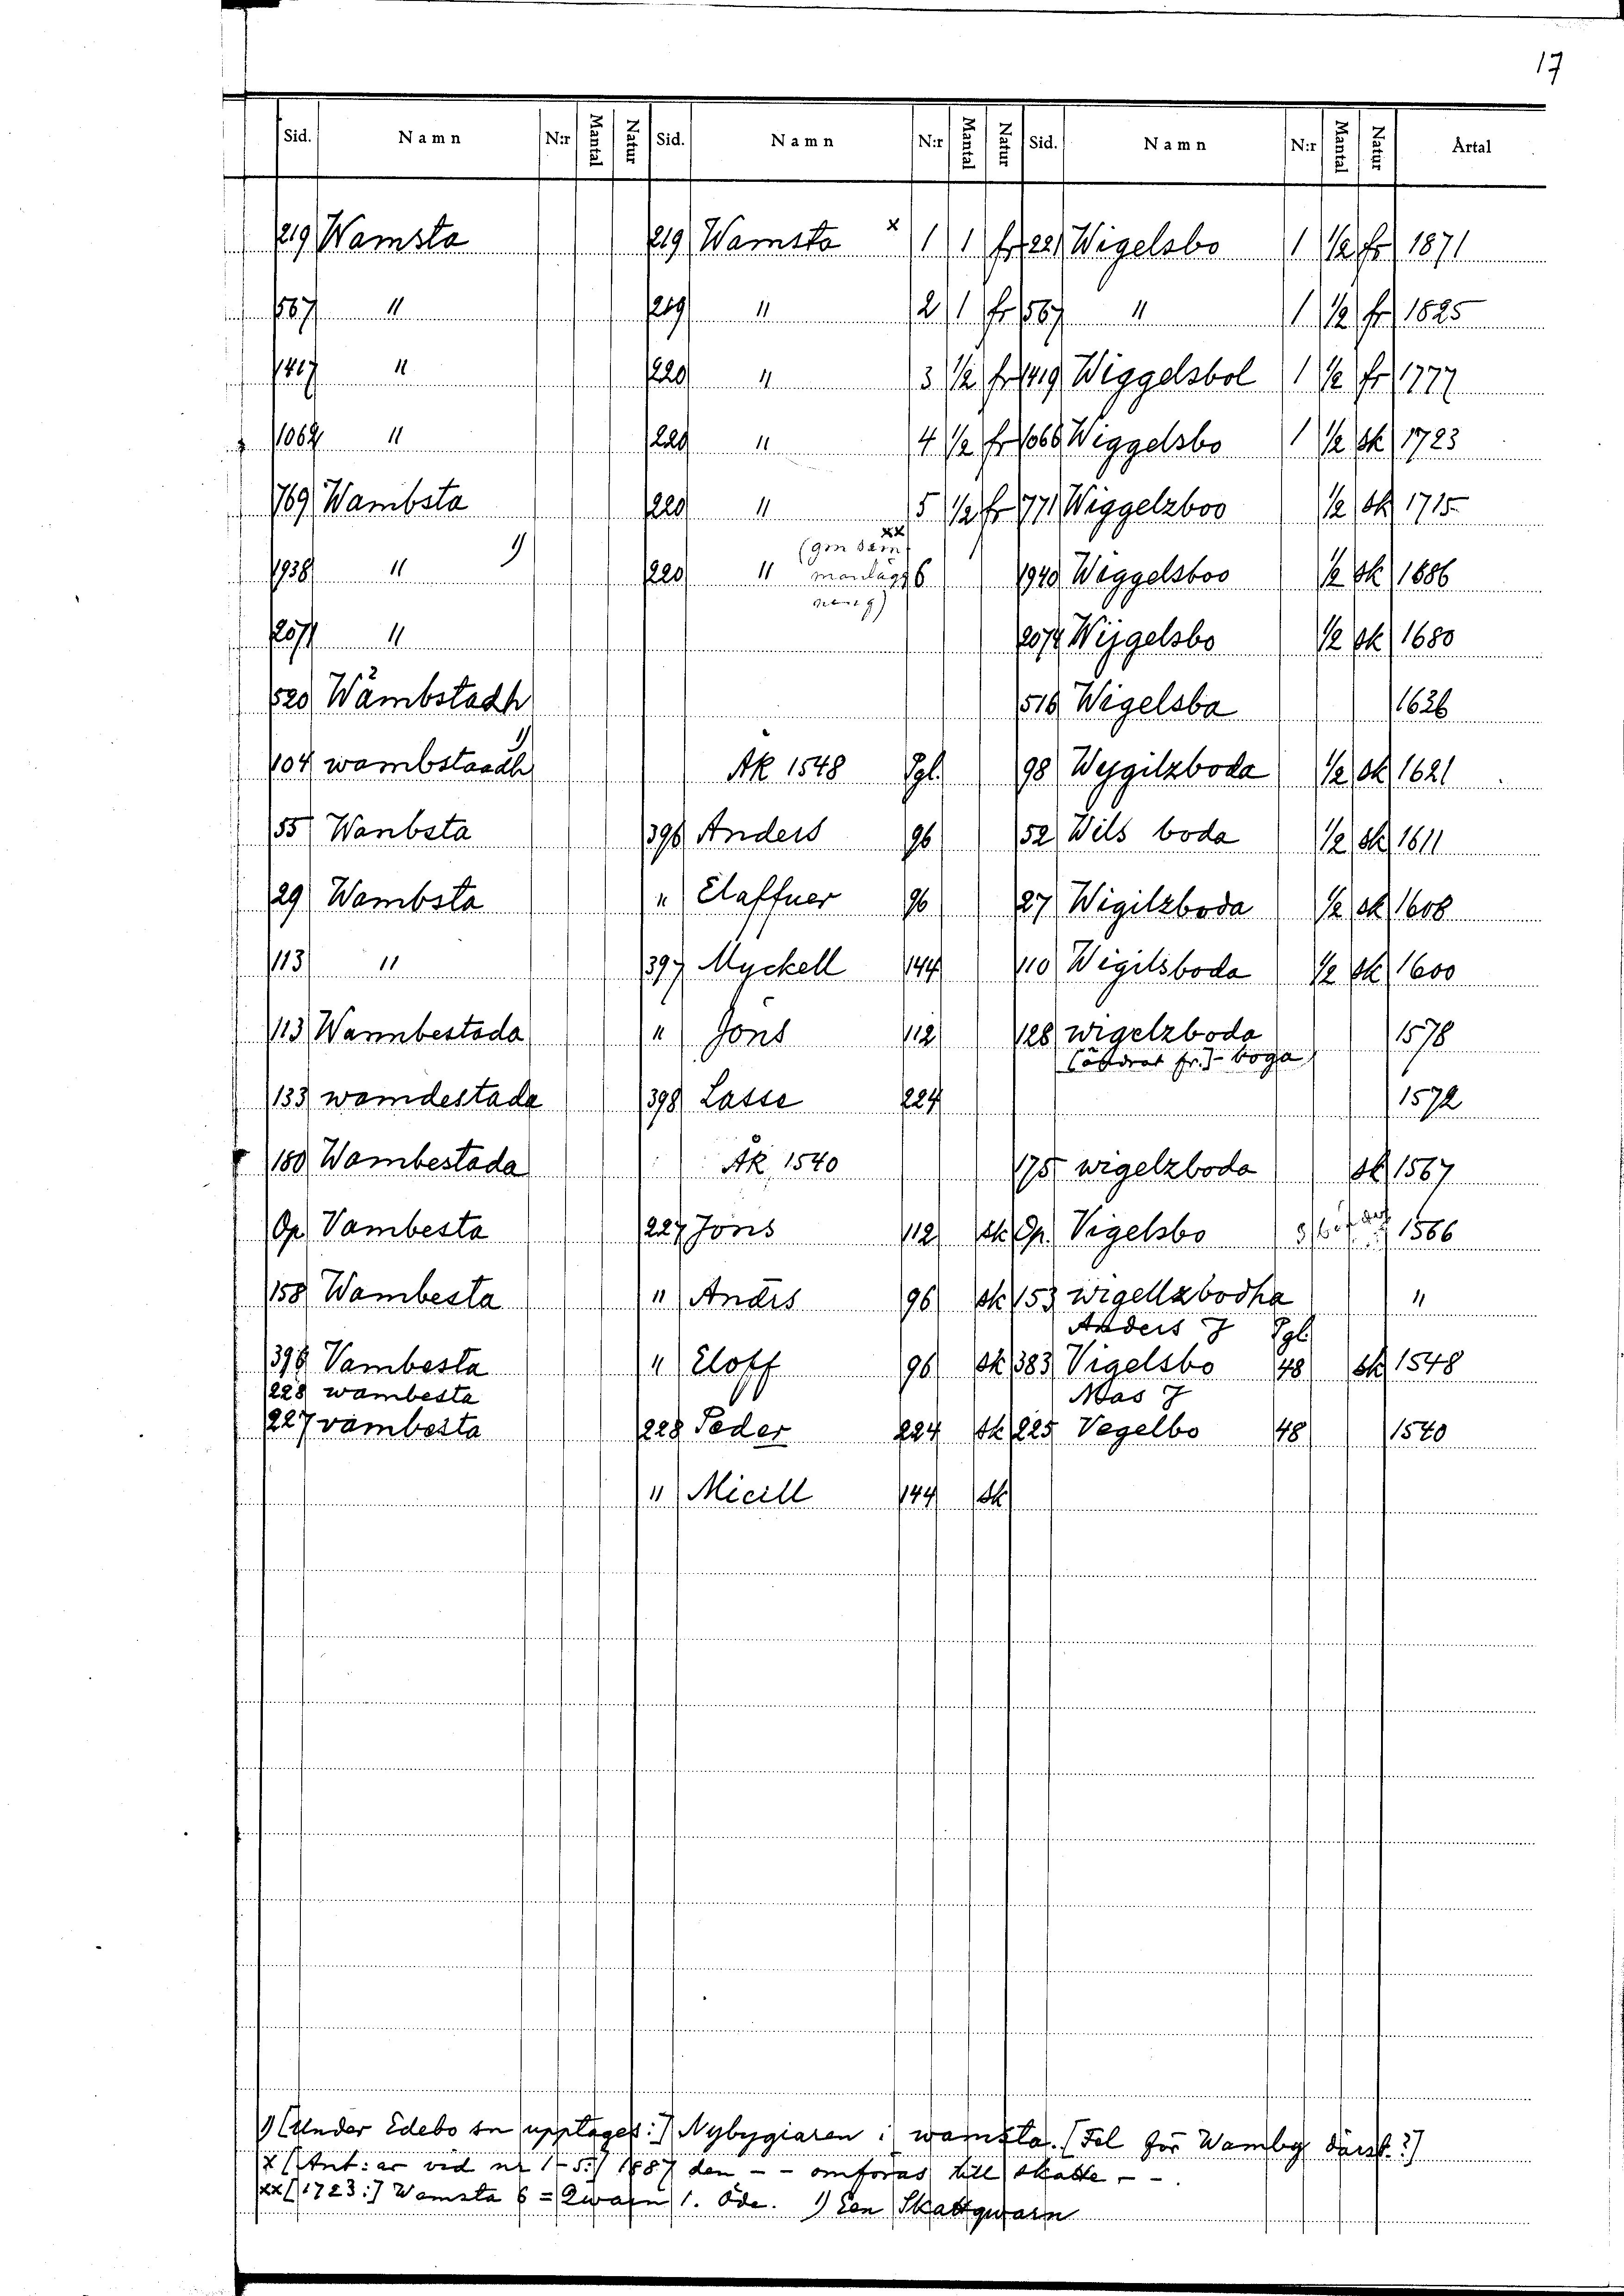 17
Sid. Namn N:r Mantal Natur Sid. Namn N:r Mantal Natur Sid. Namn N:r Mantal Natur Årtal
219 Wamsta 219 Wamsta x 1 1 fr 221 Wigelsbo 1 1/2 fr 1871
567 " 219 " 2 1 fr 567 " 1 1/2 fr 1825
1417 " 220 " 3 1/2 fr 1419 Wiggelsbol 1 1/2 fr 1777
1064 " 220 " 4 1/2 fr 1066 Wiggelsbo 1 1/2 sk 1723
769 Wambsta 220 " 5 1/2 fr 771 Wiggelzboo 1/2 sk 1715
xx
(gm sam
1938 " 1) 220 " manlägg 6 1940 Wiggelsboo 1/2 sk 1686
ning)
2071 " 2074 Wijgelsbo 1/2 sk 1680
520 Wambstadh 2 516 Wigelsba 1626
104 wambstaadh 1) Åk 1548 Pgl. 98 Wejgilzboda 1/2 sk 1621
55 Wanbsta 396 Anders 96 52 Wils boda 1/2 sk 1611
29 Wambsta " Elaffuer 96 27 Wigilzboda 1/2 sk 1608
113 " 397 Myckell 144 110 Wigilsboda 1/2 sk 1600
113 Wannbestada " Jöns 112 128 wigelzboda 1578
[ändrat fr.]- boga
133 wamdestada 398 Lasse 224 1572
180 Wambestada Åk 1540 175 wigelzboda sk 1567
Op. Vambesta 227 Jöns 112 sk Op. Vigelsbo 1566
158 Wambesta " Andrs 96 sk 153 wigellzbodha "
Anders J Pgl.
396 Vambesta " Eloff 96 sk 383 Vigelsbo 48 sk 1548
228 wambesta Mas J
227 vambesta 228 Peder 224 sk 225 Vegelbo 48 1540
" Micill 144 sk
1) [Under Edebo sn upptages:] Nybygiaren i wamsta. [Fel för Wamby därst.?]
x [Ant: ar vid nr 1-5:] 1887 den - - omföras till skatte - -.
xx [1723:] Wamsta 6 = Qwarn 1. Öde. 1) Een Skattqwarn